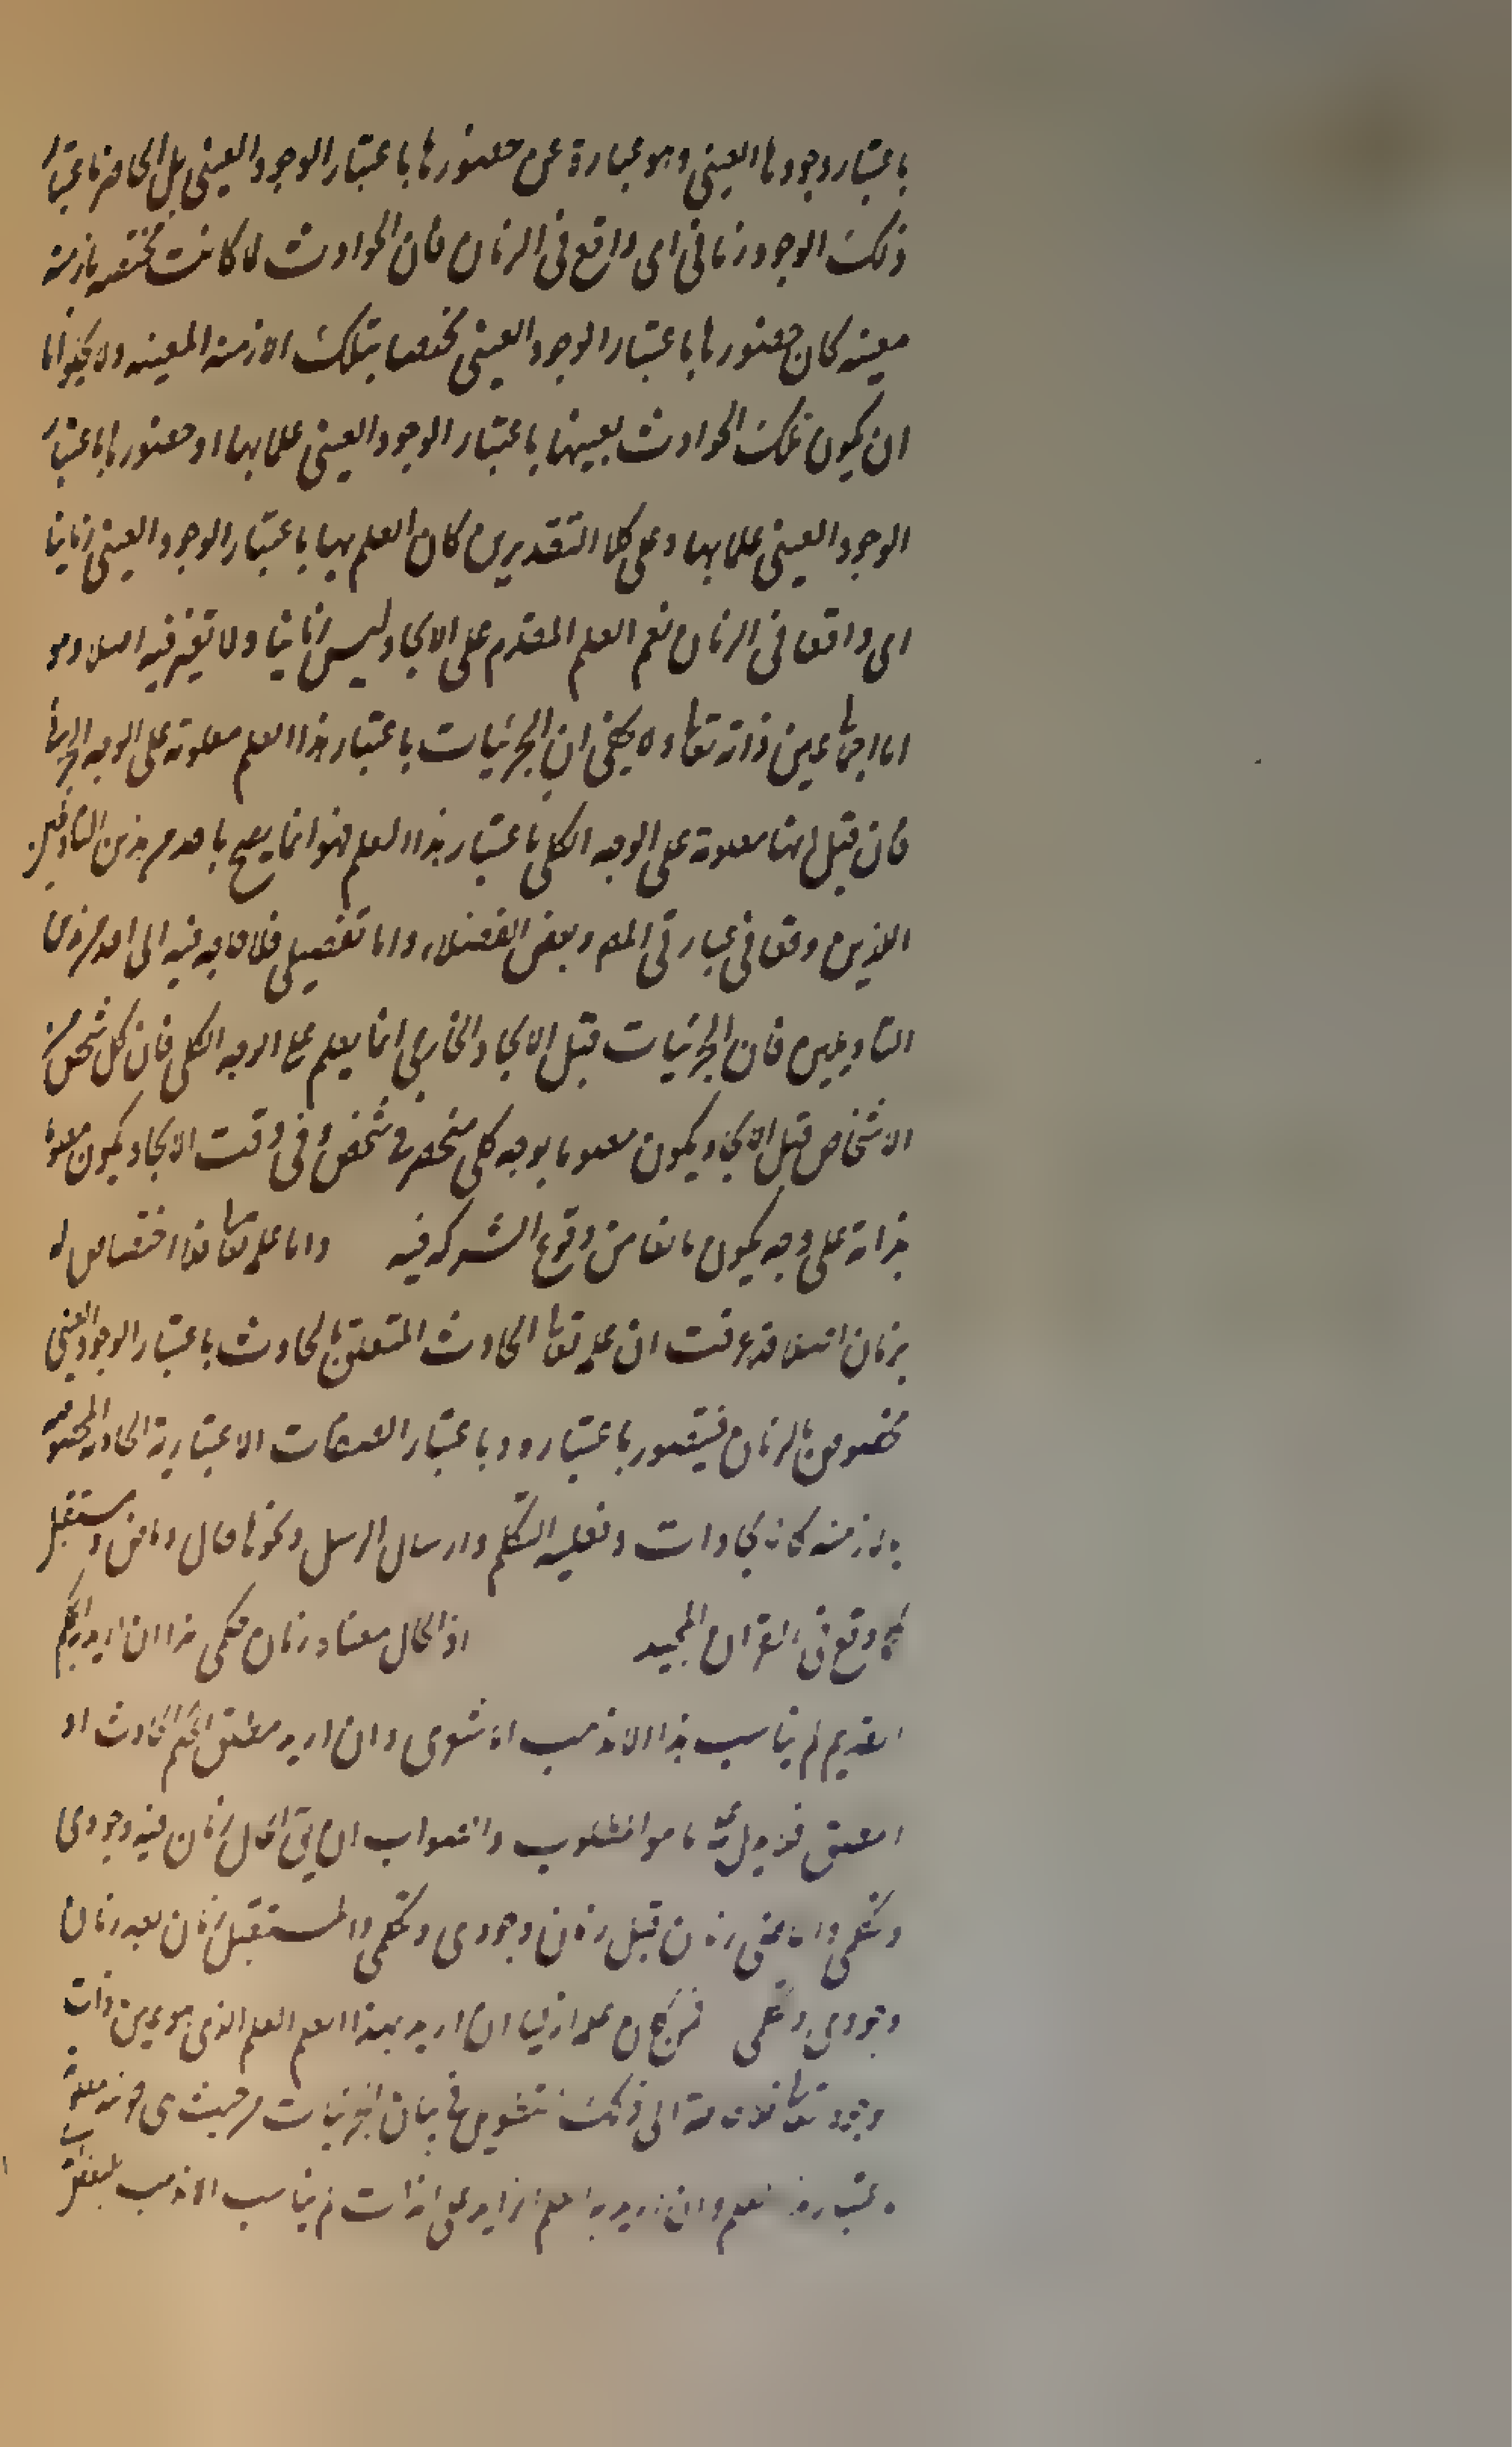 باعتبار وجودها العيني وهو عبارة عن حضورها باعتبار الوجود العيني بل الحاضر باعتبار
ذلك الوجود زماني اى واقع فى الزمان فان الحوادث لما كانت مختصة بازمنة
معينة كان حضورها باعتبار الوجود العيني مختصا بتلك الازمنة المعينة ولا يخلو اما
ان يكون تلك الحوادث بعينها باعتبار الوجود العيني علما بها او حضورها باعتبار
الوجود العيني علما بها وعلى كلا التقديرين كان العلم بها باعتبار الوجود العيني زمانيا
اى واقعا فى الزمان نعم العلم المقدم على الايجاد ليس زمانيا ولا تغير فيه اصلا وهو
اما اجمالى عين ذاته تعالى ولا يخفى ان الجزئيات باعتبار هذا العلم معلومة على الوجه الجزئى
فان قيل انها معلومة على الوجه الكلى باعتبار هذا العلم فهو انما يصح باحد من هذين التاويلين
اللذين وقعا فى عبارتى المص وبعض الفضلاء واما تفصيلى فلا حاجه فيه الى احد من هذين
التاويلين فان الجزئيات قبل الايجاد الخارجى انما يعلم على الوجه الكلى فان كل شخص من
الاشخاص قبل الايجاد يكون معلوما بوجه كلى منحصر فى شخص وفى وقت الايجاد يكون معلوما
بذاته على وجه يكون مانعا من وقوع الشركه فيه واما علمه تعالى فلا اختصاص له
بزمان اصلا قد عرفت ان علمه تعالى الحادث المتعلق بالحادث باعتبار الوجود العينى
مخصوص بالزمان فيتصور باعتباره وباعتبار الصفات الاعتبارية الحادثة المختصة
بالازمنه كالايجادات وفعلية التكلم وارسال الرسل ونحوها حال وماض ومستقبل
كما وقع فى القران المجيد اذ الحال معناه زمان حكمى هذا ان اريد بالحكم
القديم لم يناسب هذا الا مذهب الاشعرى وان اريد مطلق الحكم الحادث او
المطلق فلا يدل على ما هو المطلوب والصواب ان يق الحال زمان فيه وجودى
وتكلمى والماضى زمان قبل زمان وجودى وتكلمى والمستقبل زمان بعد زمان
وجودى وتكلمى فمن كان علمه ازليا ان اريد بهذا العلم العلم الذى هو عين ذات
وجوده تعالى فلا حاجة الى ذلك فى بيان ان الجزئيات من حيث هى جزئية معلومة
باعتبار هذا العلم وان اريد به العلم الزايد على الذات لم يناسب الا مذهب